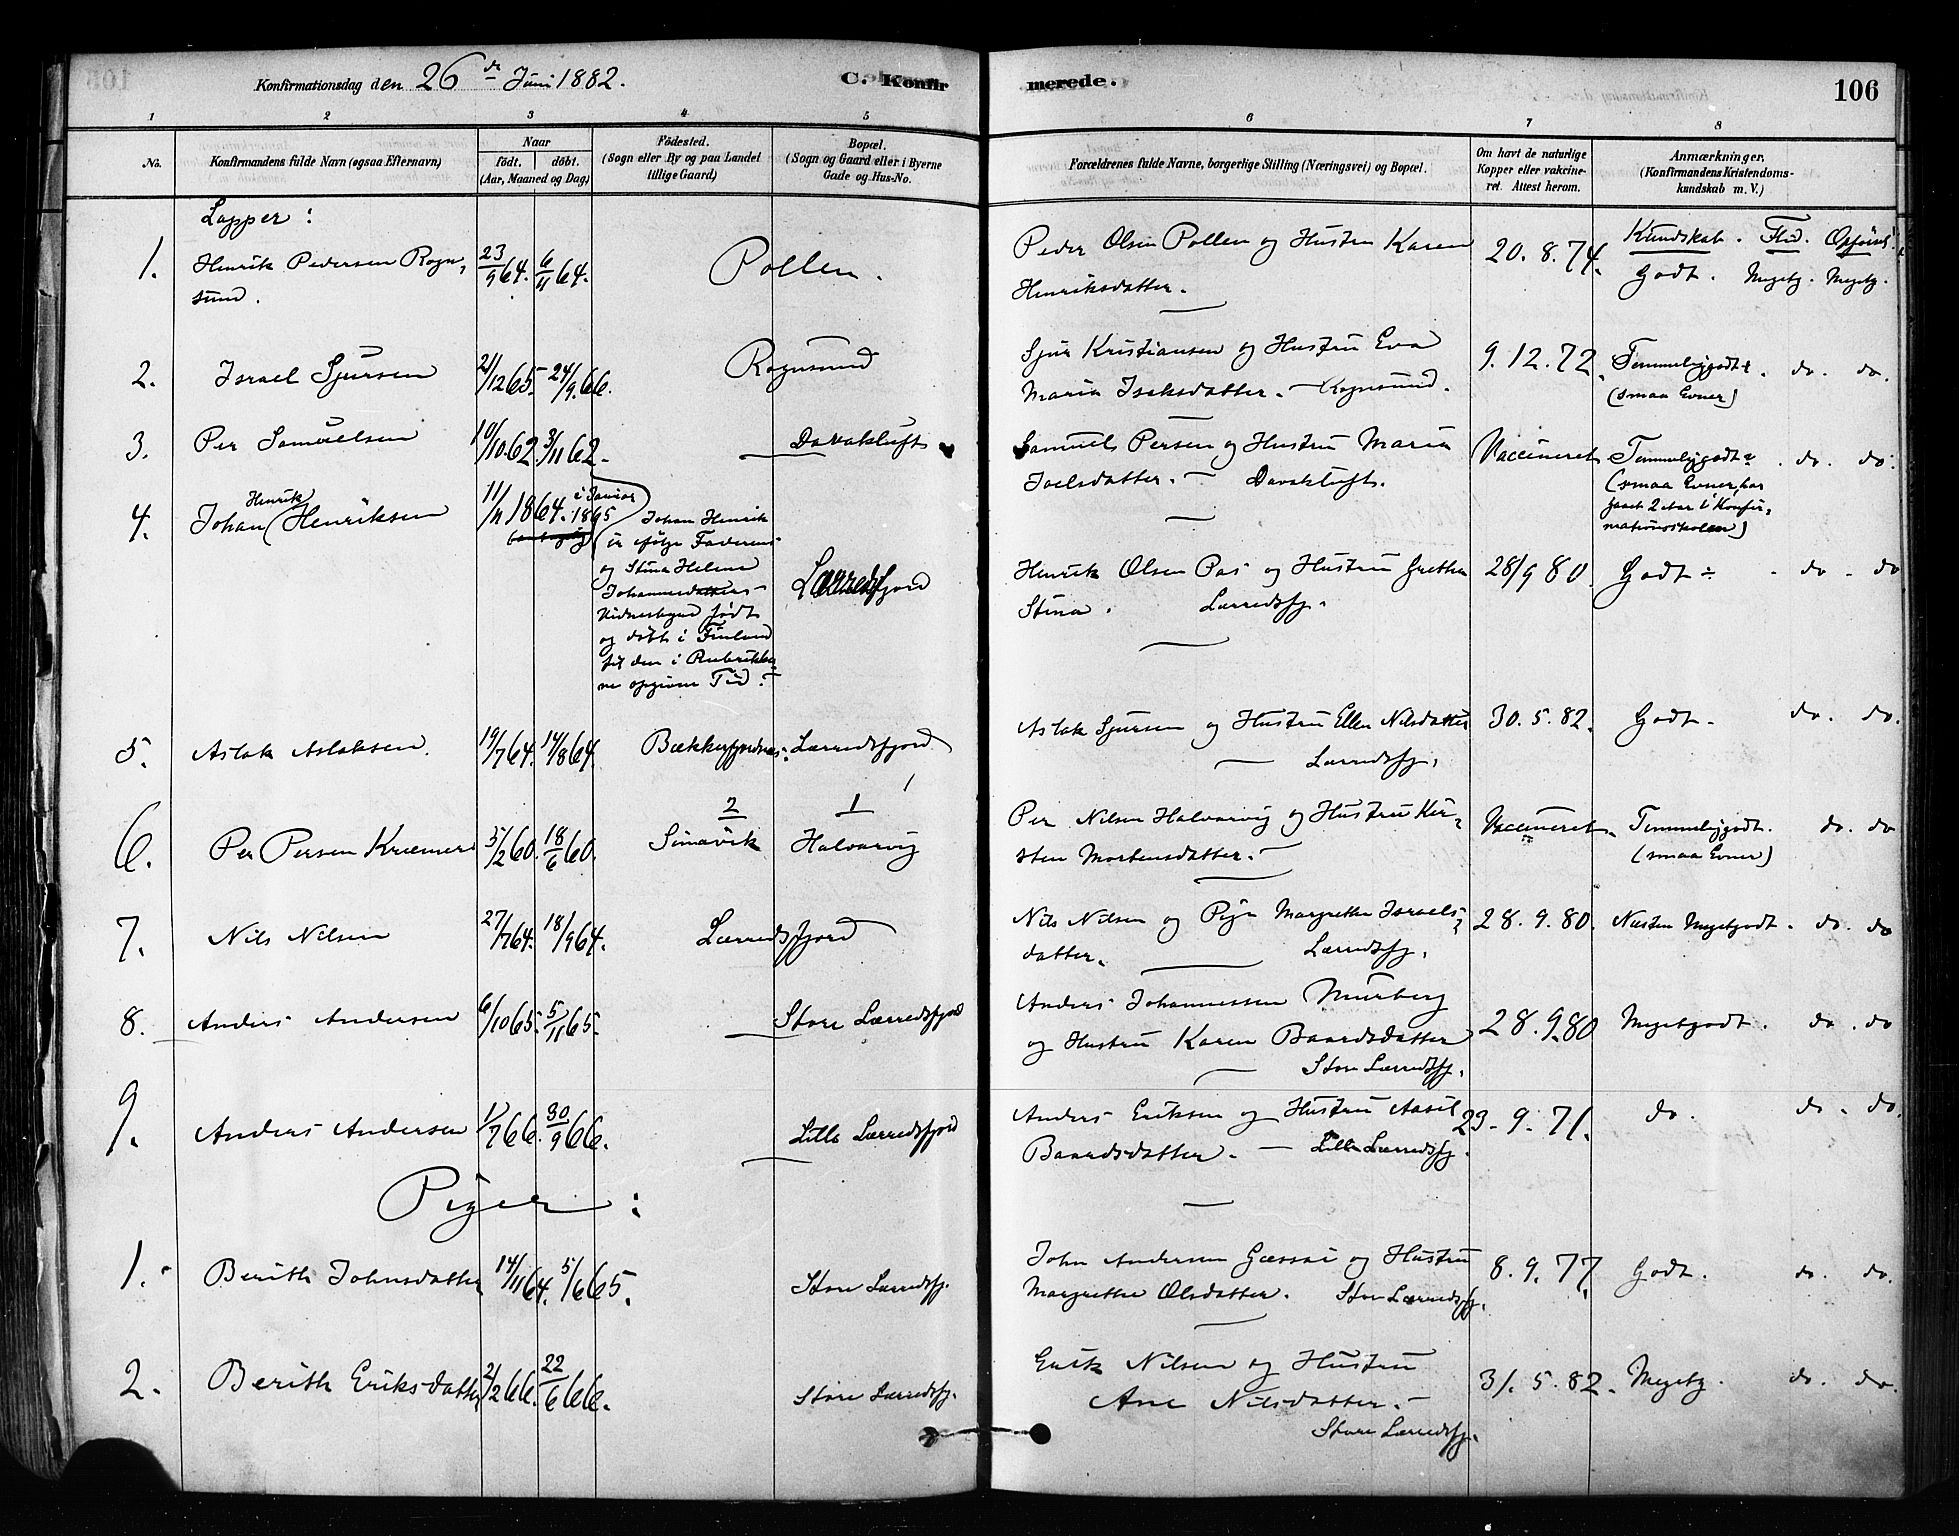 Konfirmationsdag den 26de Juni 1882.
C. Konfir
merede.
106
1 2 3 4 5 6 7 8
No.
Konfirmandens fulde Navn (ogsaa Efternavn)
Naar
födt. döbt.
(Aar, Maaned og Dag)
Födested.
(Sogn eller By og paa Landet
tillige Gaard)
Bopæl.
(Sogn og Gaard eller i Byerne
Gade og Hus-No.
Forældrenes fulde Navne, borgerlige Stilling (Næringsvei) og Bopæl.
Om havt de naturlige
Kopper eller vakcine-
ret. Attest herom.
Anmærkninger.
(Konfirmandens Kristendoms-
kundskab m. V.)
Lapper:
Kundskab. Flid. Opførsel
1. Henrik Pedersen Rogn-
sund.
23/9 64. 6/11 64.
Pollen.
Peder Olsen Pollen og Hustru Karen
Henriksdatter.
20. 8. 74.
Godt. Megetg. Megetg.
2. Israel Sjursen
21/12 65. 24/9. 66.
Rognsund
Sjur Kristiansen og Hustru Eva
Maria Isaksdatter. - Rognsund.
9. 12. 72.
Temmeliggodt. do. do.
(smaa Evner)
3. Per Samuelsen
10/10 62. 3/11 62.
Davakluft
Samuel Persen og Hustru Maria
Joelsdatter. - Davakluft.
Vaccineret
Temmeliggodt . do. do.
(smaa Evner, har
gaaet 2 Aar i Konfir-
mationsskolen)
4. Johan Henrik Henriksen
11/11 1864. i Januar 1865
Johan Henrik
er ifølge Faderens
og Stina Helena
Johannesdatters
Vidnesbyrd født
og døbt i Finland
til den i Rubrikker-
ne opgivne Tid.
Lærredsfjord
Henrik Olsen Pas og Hustru Grethe
Stina. Lærredsfj.
28/9 80.
Godt ÷ . do. do
5. Aslak Aslaksen.
19/7 64. 14/8 64.
Lærredsfjord
Aslak Sjursen og Hustru Ellen Nilsdatter
Lærredsfj.
30. 5. 82.
Godt. do. do.
6. Per Persen Kræmer
5/2 60. 18/6 60.
2 1
Simavik Halvarvig
Per Nilsen Halvarvig og Hustru Kir-
sten Mortensdatter.
Vaccineret.
Temmeliggodt. do. do
(smaa Evner)
7. Nils Nilsen
27/7 64. 18/9 64.
Lærredsfjord
Nils Nilsen og Pige Margrethe Israels-
datter. Lærredsfj.
28. 9. 80.
Næsten Megetgodt. do. do
8. Anders Andersen
6/10 65. 5/11 65.
Store Lærredsfjord
Anders Johannessen Murberg
og Hustru Karen Baardsdatter
Store Lærredsfj.
28. 9. 80
Megetgodt. do. do
9. Anders Andersen
1/7 66. 30/9 66.
Lille Lærredsfjord
Anders Eriksen og Hustru Aasil
Baardsdatter. - Lille Lærredsfj.
23. 9. 71.
do. do. do.
Piger:
1. Berith Johnsdatter
14/11 64. 5/6 65.
Store Lærredsfj.
John Andersen Gæssai og Hustru
Margrethe Olsdatter. Store Lærredsfj.
8. 9. 77.
Godt. do. do.
2. Berith Eriksdatter
2/2 66. 22/6 66.
Store Lærredsfj.
Erik Nilsen og Hustru
Ane Nilsdatter.
Store Lærredsfj.
31. 5. 82.
Megetg. do. do.